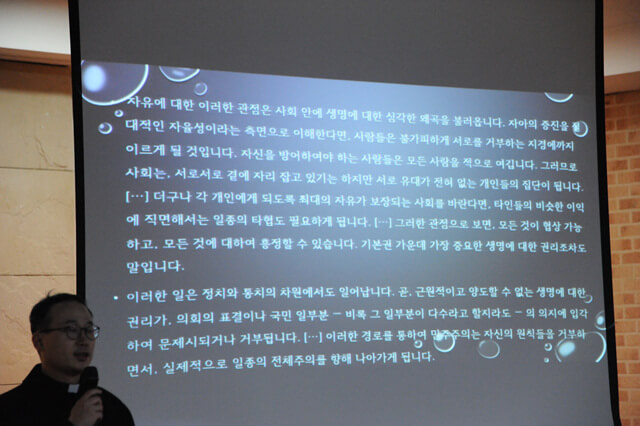 • 자유에 대한 이러한 관점은 사회 안에 생명에 대한 심각한 왜곡을 불러옵니다. 자아의 증진을 절
대적인 자율성이라는 측면으로 이해한다면, 사람들은 불가피하게 서로를 거부하는 지경에까지
이르게 될 것입니다. 자신을 방어하여야 하는 사람들은 모든 사람을 적으로 여깁니다. 그러므로
사회는, 서로서로 곁에 자리 잡고 있기는 하지만 서로 유대가 전혀 없는 개인들의 집단이 됩니다.
[…] 더구나 각 개인에게 되도록 최대의 자유가 보장되는 사회를 바란다면, 타인들의 비슷한 이익
에 직면해서는 일종의 타협도 필요하게 됩니다. […] 그러한 관점으로 보면, 모든 것이 협상 가능
하고, 모든 것에 대하여 흥정할 수 있습니다. 기본권 가운데 가장 중요한 생명에 대한 권리조차도
말입니다.
• 이러한 일은 정치와 통치의 차원에서도 일어납니다. 곧, 근원적이고 양도할 수 없는 생명에 대한
권리가, 의회의 표결이나 국민 일부분 – 비록 그 일부분이 다수라고 할지라도 – 의 의지에 입각
하여 문제시되거나 거부됩니다. […] 이러한 경로를 통하여 민주주의는 자신의 원칙들을 거부하
면서, 실제적으로 일종의 전체주의를 향해 나아가게 됩니다.